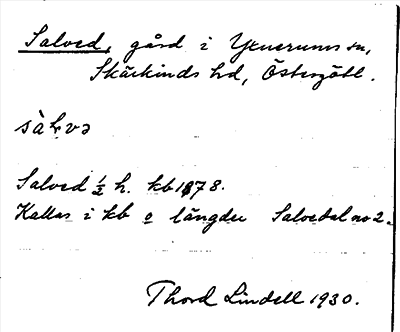 Salved, gård i Yxnerums sn,
Skärkinds hd, Östergötl.
sàlvə
Salved ½ h. kb 1878.
Kallas i kb o längder Salvedal no 2.
Thord Lindell 1930.